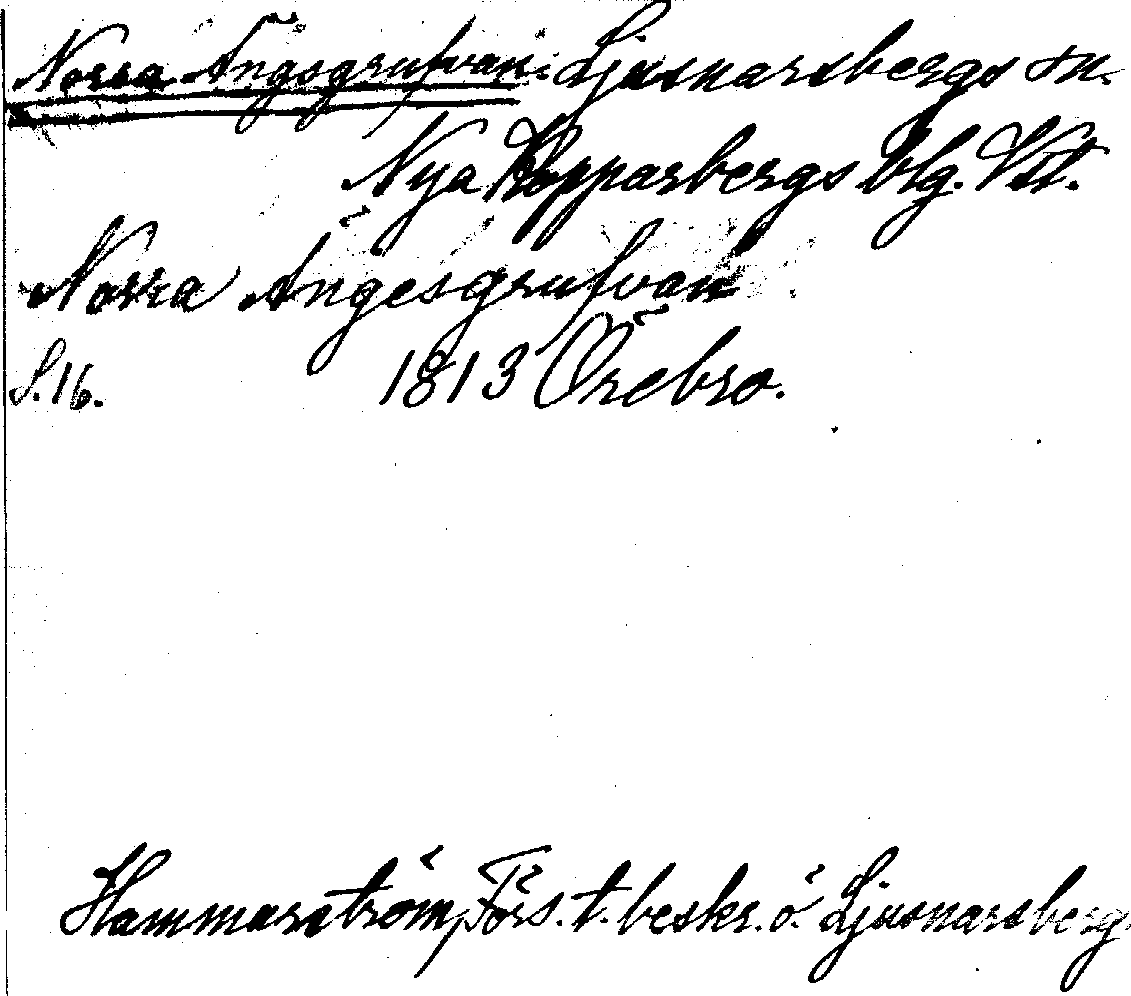 Norra Ängsgrufvan: Ljusnarsbergs sn.
Nya Kopparbergs blg. Vstl.
Norra Ängesgrufvan
S. 16. 1813 Örebro.
Hammarström, Förs. t. beskr. ö. Ljusnarsberg.